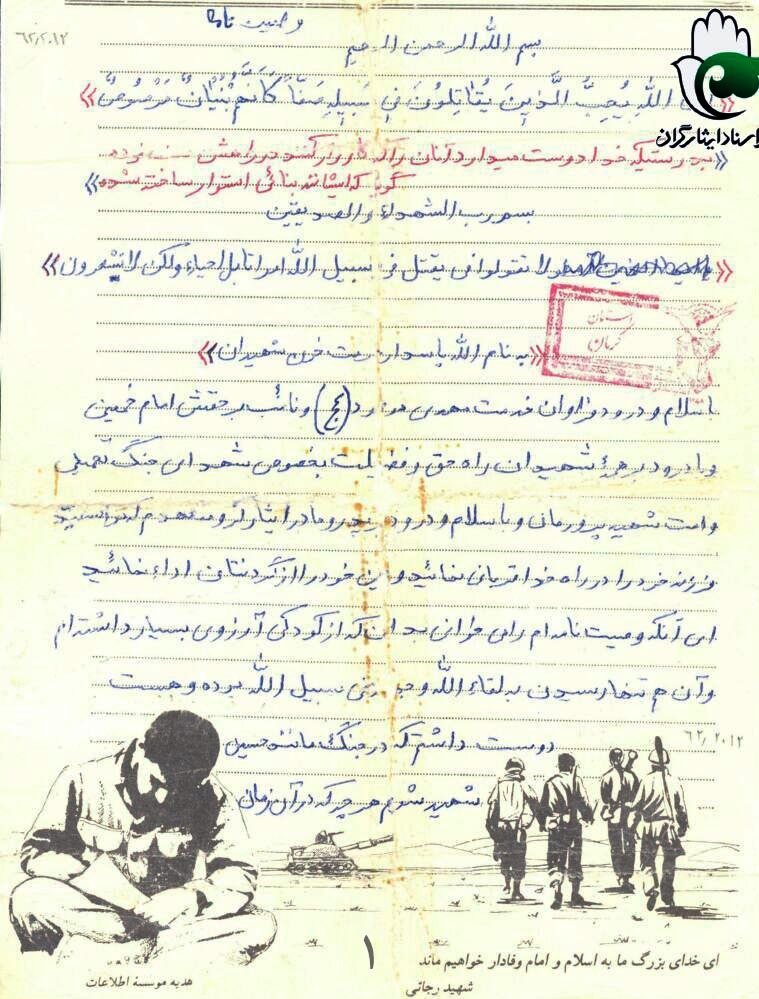 وصیت نامه
۶۲/۲۰۱۲
بسم الله الرحمن الرحیم
«ان الله یُحِبُّ الَّذینَ یُقاتِلُونَ فی سَبیلِهِ صَفّاً کَاَنَّهُمْ بُنْیانٌ مَرْصُوصٌ»
اسناد ایثارگران
«بدرستیکه خدا دوست میدارد آنان را که کارزار کنند در راهش صف زده
گویا که ایشانند بنائی استوار ساخته شده»
بسم رب الشهداء و الصدیقین
«لا تقولوا لمن یقتل فی سبیل الله امواتا بل احیاء ولکن لا تشعرون»
استان
کرمان
«به نام الله پاسدار حرمت خون شهیدان»
با سلام و درود فراوان خدمت مهدی موعود (عج) و نائب برحقش امام خمینی
و با درود بر همۀ شهیدان راه حق و فضیلت بخصوص شهدای جنگ تحمیلی
و امت شهید پرورمان و با سلام و درود بر پدر و مادر ایثارگر و متعهدم که توانستید
فرزند خود را در راه خدا قربانی نمائید و دین خود را از گردنتان اداء نمائید
ای آنکه وصیت نامه ام رای خوانی بدان که از کودکی آرزوی بسیار داشته ام
و آن هم تنها رسیدن به لقاء الله و جهاد فی سبیل الله بوده و هست
دوست داشتم که در جنگ مانند حسین
۶۲/۲۰۱۲
شهید شویم هر چه که در آن زمان
۱
ای خدای بزرگ ما به اسلام و امام وفادار خواهیم ماند
شهید رجائی
هدیه موسسهٔ اطلاعات